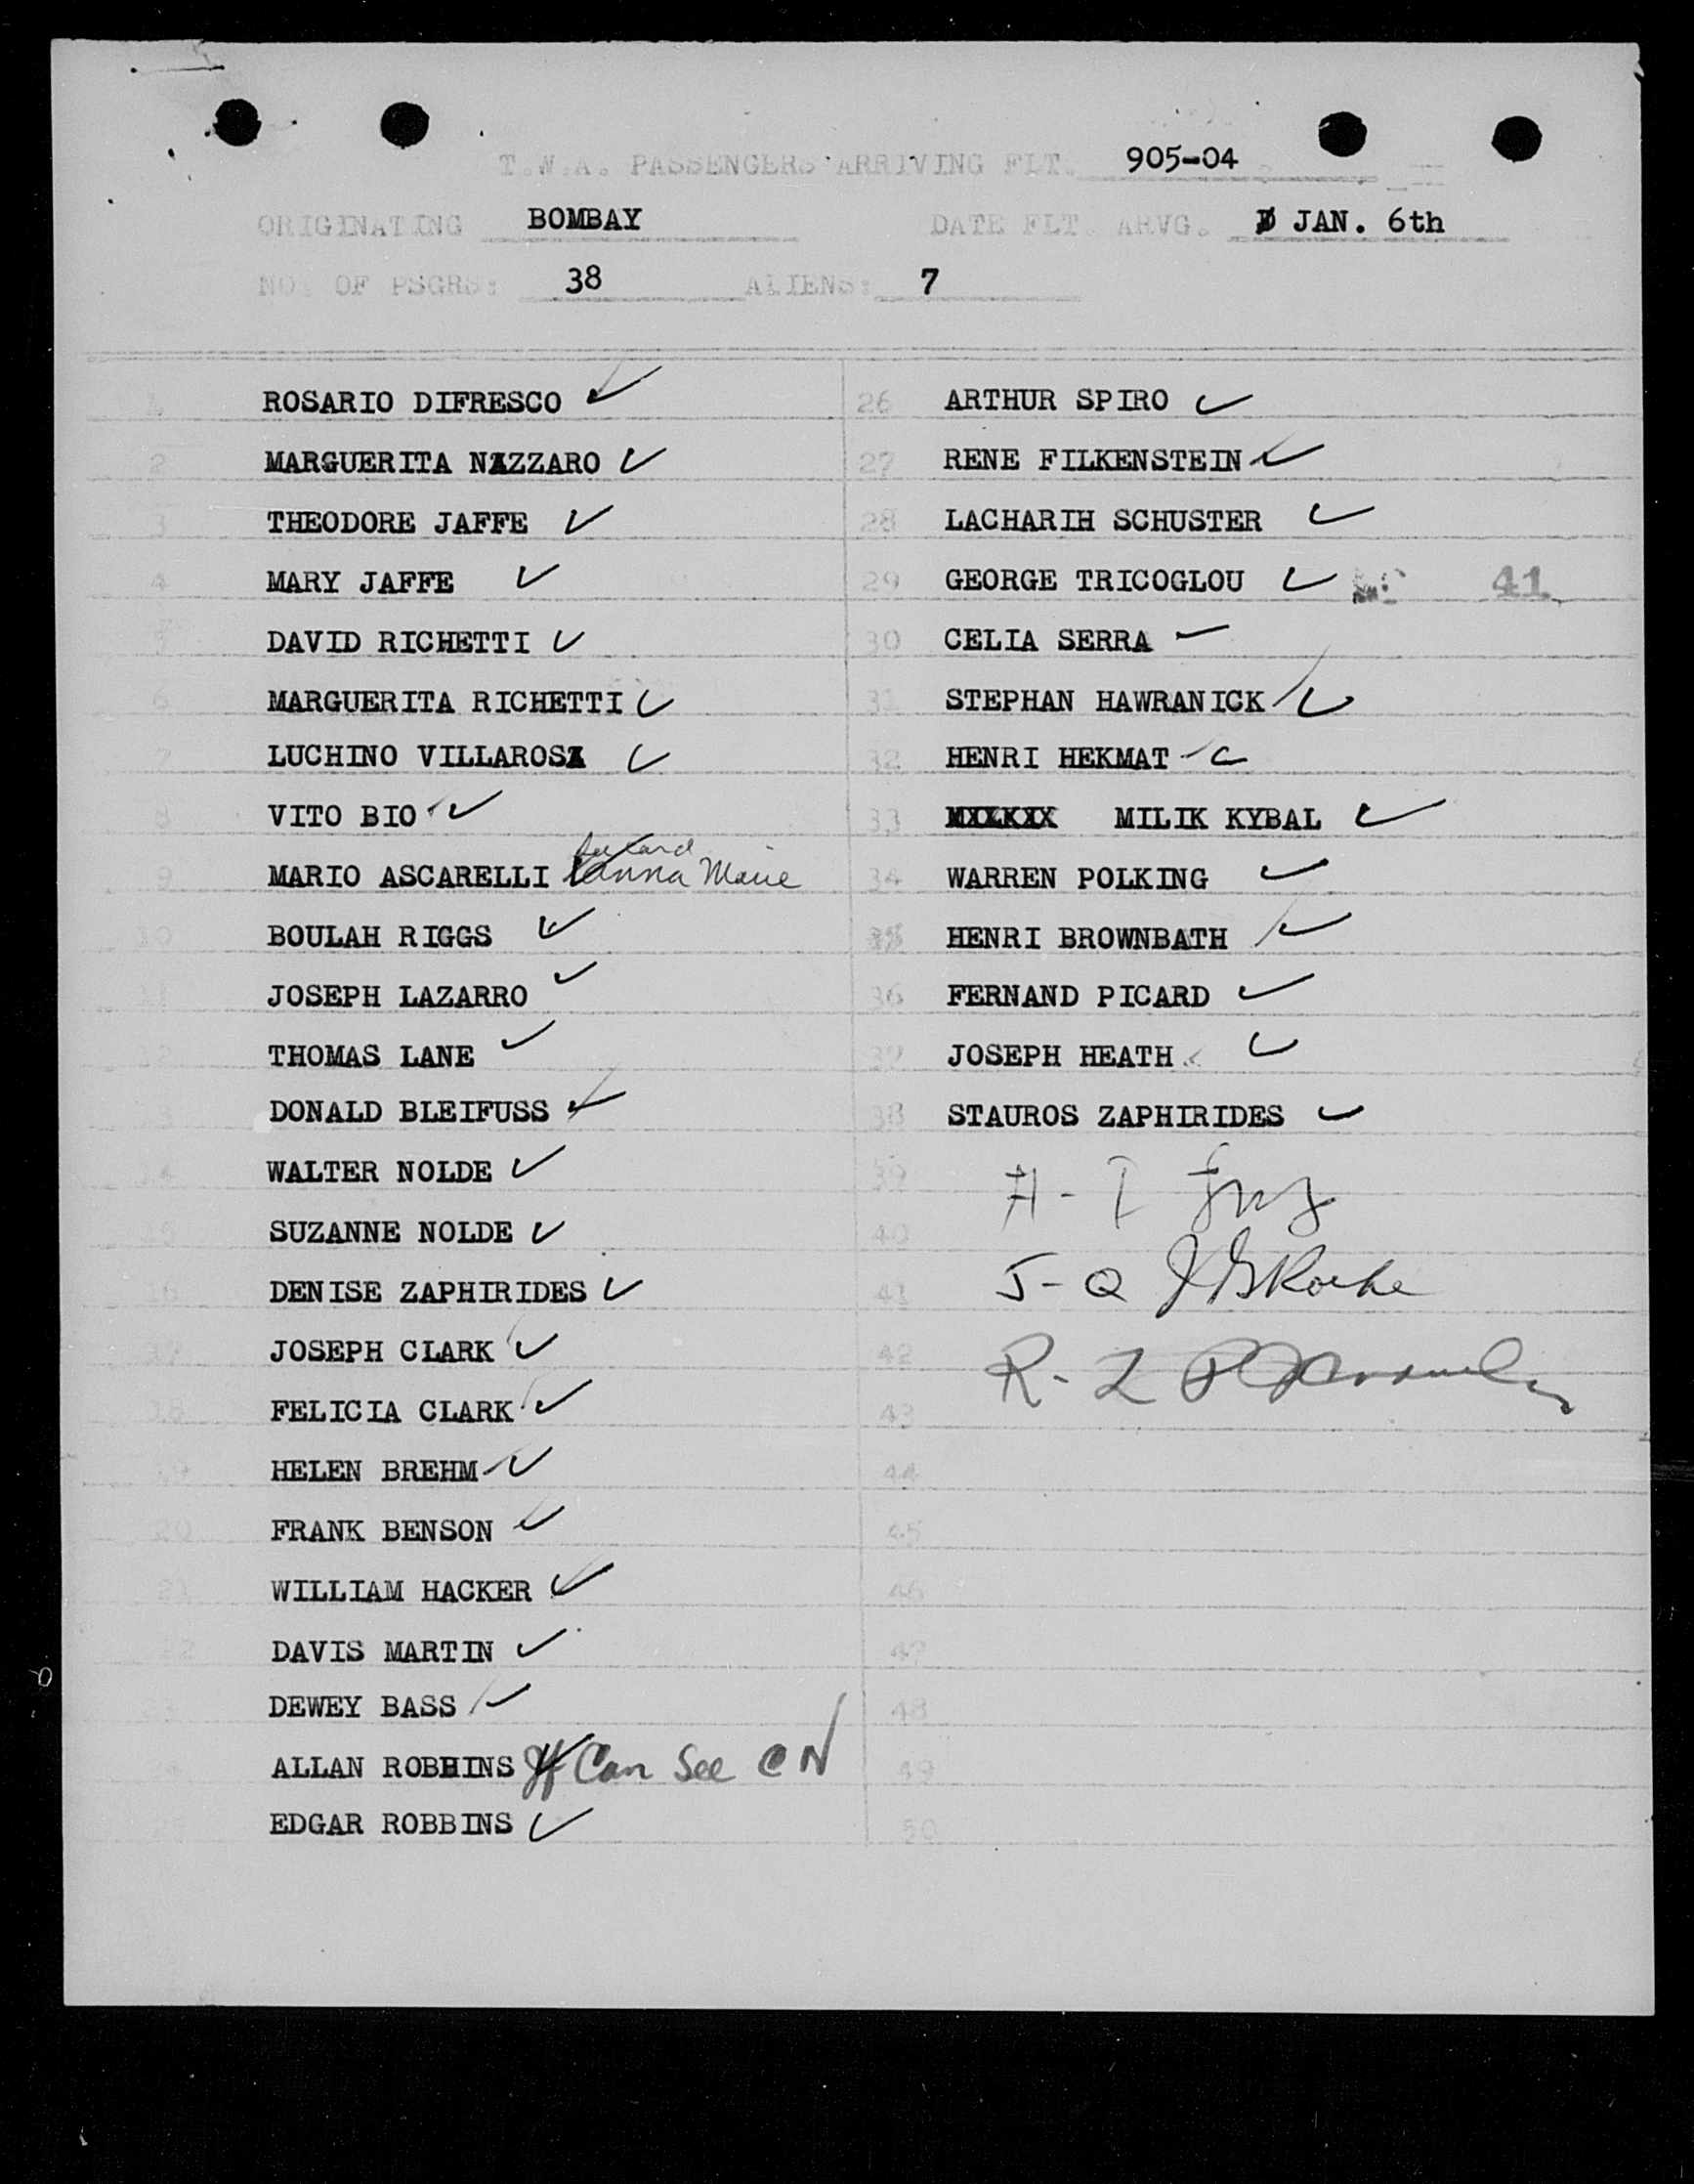 T.W.A. PASSENGERS ARRIVING FLT. 905-04
ORIGINATING BOMBAY DATE FLT. ARVG. JAN. 6th
NO. OF PSGRS: 38 ALIENS: 7
1 ROSARIO DIFRESCO
2 MARGUERITA NAZZARO
3 THEODORE JAFFE
4 MARY JAFFE
5 DAVID RICHETTI
6 MARGUERITA RICHETTI
7 LUCHINO VILLAROSA
8 VITO BIO
9 MARIO ASCARELLI see card Anna Marie
10 BOULAH RIGGS
11 JOSEPH LAZARRO
12 THOMAS LANE
13 DONALD BLEIFUSS
14 WALTER NOLDE
15 SUZANNE NOLDE
16 DENISE ZAPHIRIDES
17 JOSEPH CLARK
18 FELICIA CLARK
19 HELEN BREHM
20 FRANK BENSON
21 WILLIAM HACKER
22 DAVIS MARTIN
23 DEWEY BASS
24 ALLAN ROBBINS Can See CN
25 EDGAR ROBBINS
26 ARTHUR SPIRO
27 RENE FILKENSTEIN
28 LACHARIH SCHUSTER
29 GEORGE TRICOGLOU 41
30 CELIA SERRA
31 STEPHAN HAWRANICK
32 HENRI HEKMAT
33 MILIK KYBAL
34 WARREN POLKING
35 HENRI BROWNBATH
36 FERNAND PICARD
37 JOSEPH HEATH
38 STAUROS ZAPHIRIDES
39 H - I
40
41 J - Q
42 R - Z
43
44
45
46
47
48
49
50